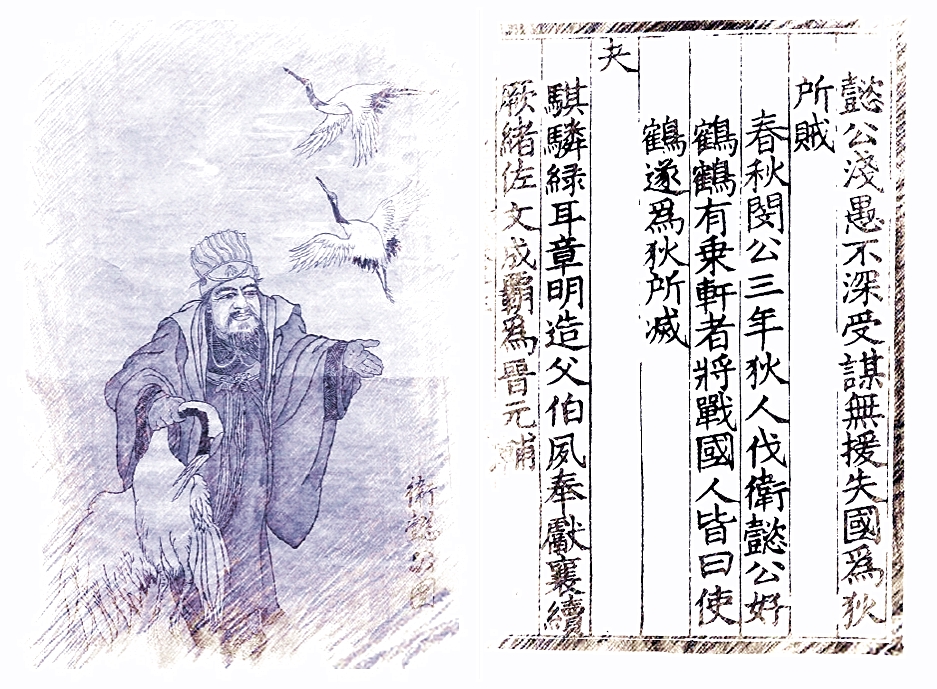 懿公淺愚不深受謀無援失國爲狄
所賊
春秋閔公三年狄人伐衛懿公好
鶴鶴有乗軒者將戰國人皆曰使
鶴遂爲狄所滅
夬
騏驎緑耳章明造父伯夙奉獻襄續
厥緒佐文成霸爲晉元
衛懿公圖